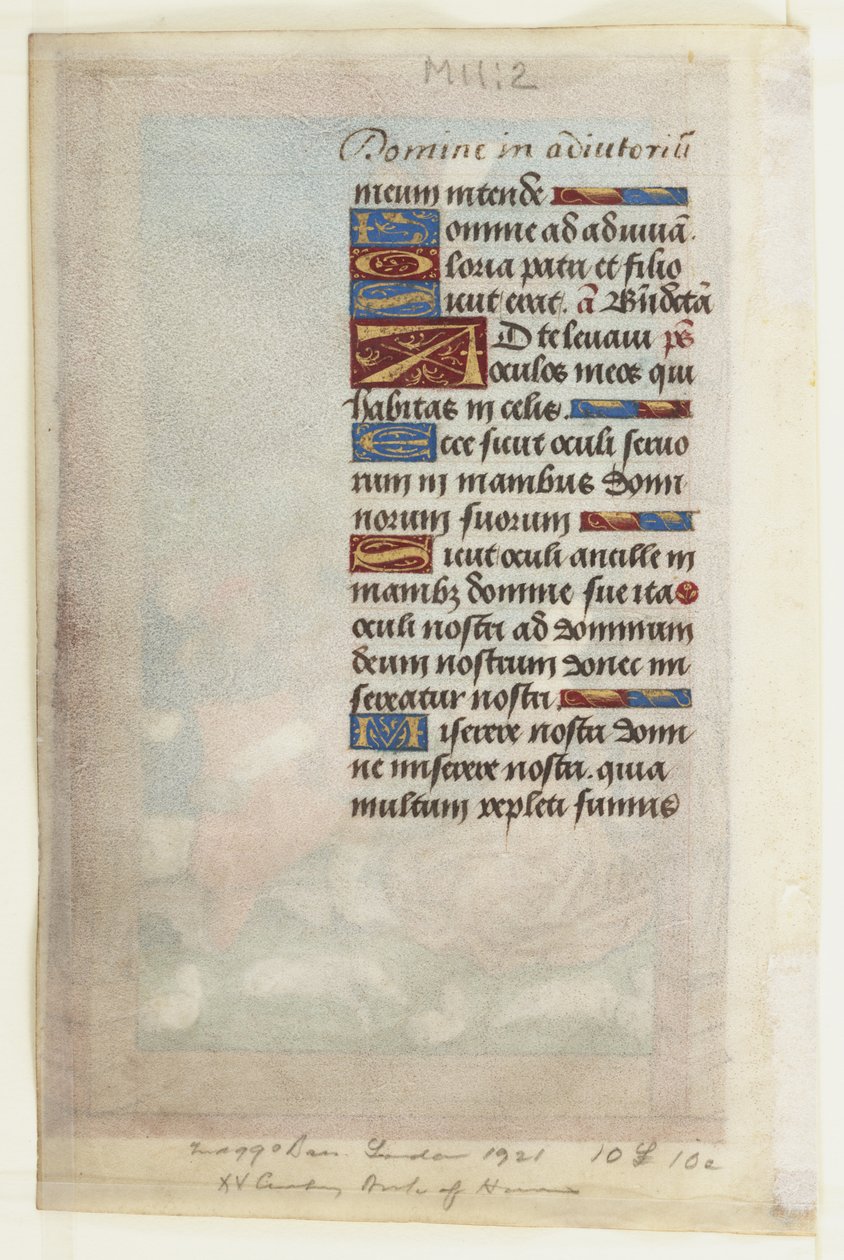 M11:2
Domine in adiutoriū
meum intende
Domine ad adiuuā.
Gloria patri et filio
Sicut erat. ā Bn̄dctā
AD te leuaui ps̄
oculos meos qui
habitas in celis.
Ecce sicut oculi seruo
rum in manibus domi
norum suorum
Sicut oculi ancille in
manibꝫ domine sue ita
oculi nostri ad dominum
deum nostrum donec mi
sereatur nostri.
Miserere nostri domi
ne miserere nostri. quia
multum repleti sumus
Maggs Bros. London 1921 10 £ 10s
XV Century Book of Hours